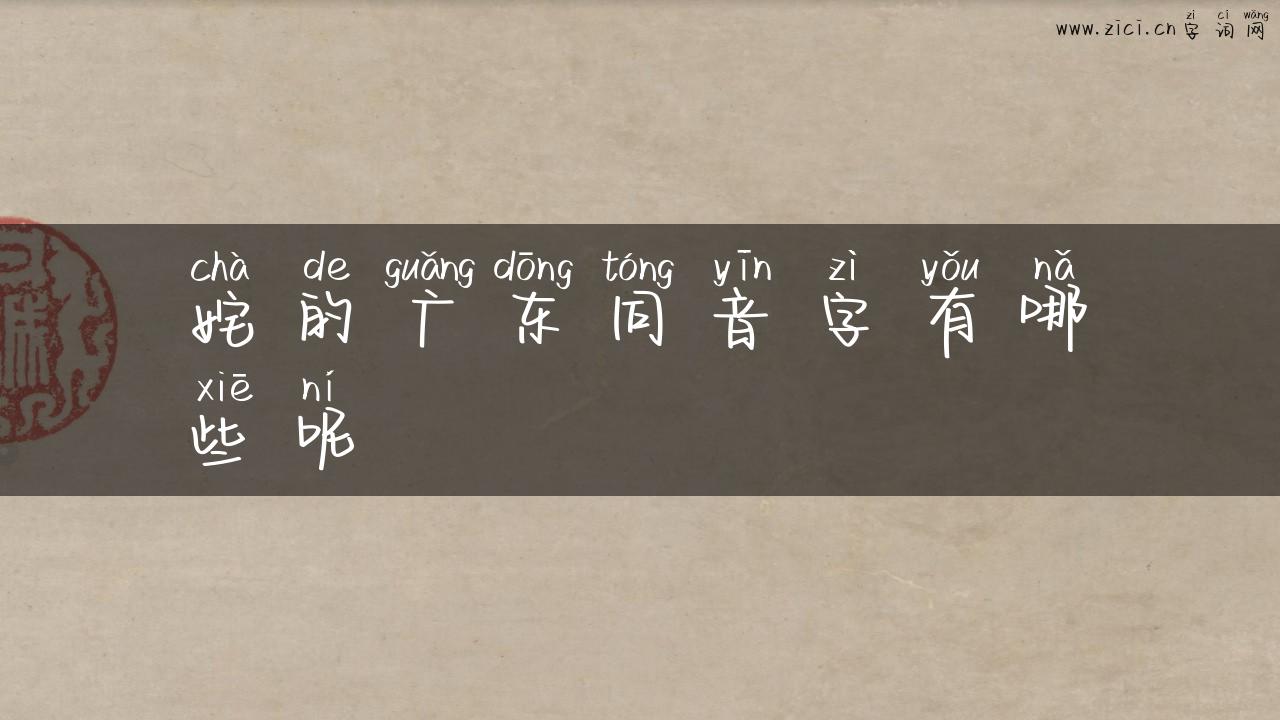 zì cí wǎng
www.zici.cn 字词网
chà de guǎng dōng tóng yīn zì yǒu nǎ
姹的广东同音字有哪
xiē ní
些呢